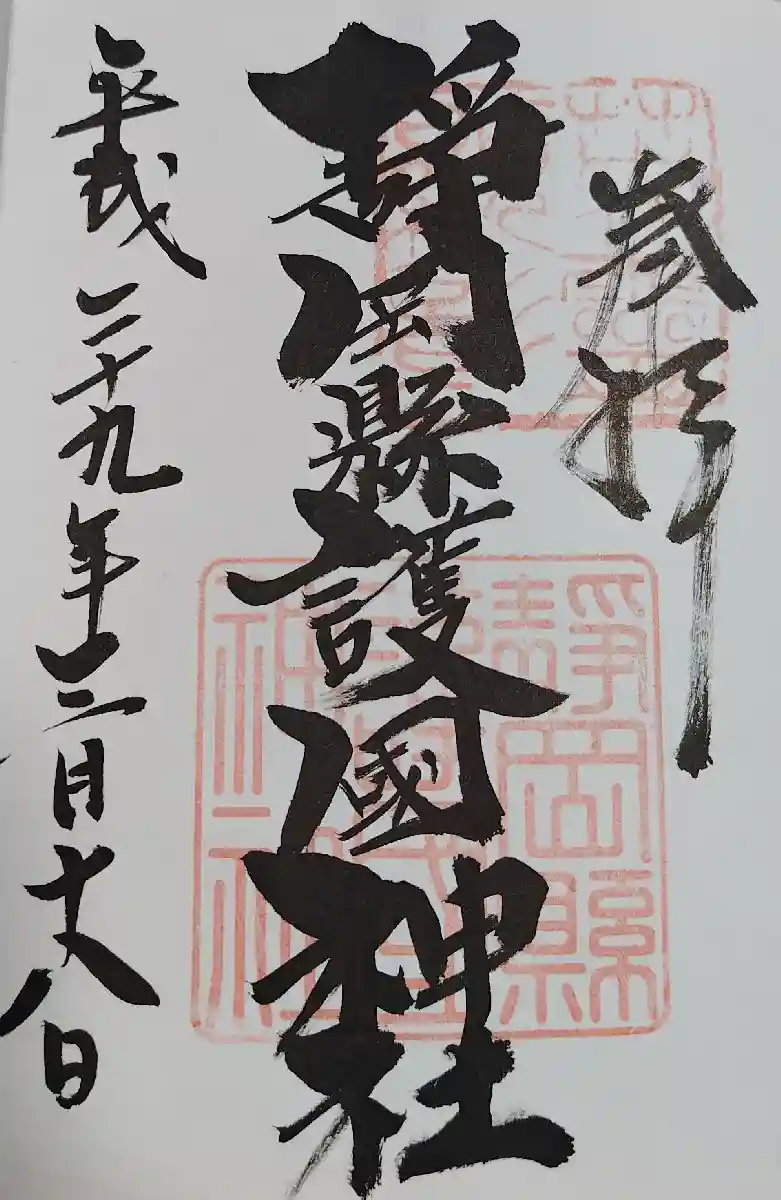 参拝
靜岡縣護國神社
平成二十九年三月十八日
靜岡縣護國神社